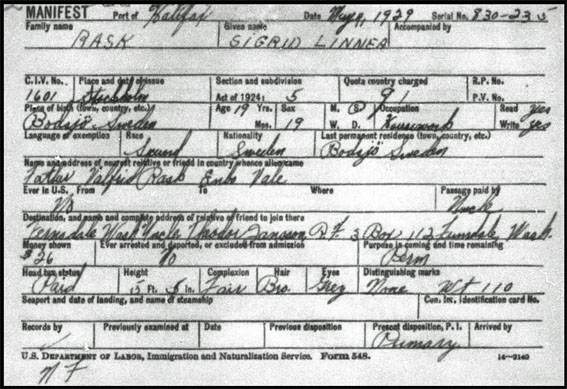 MANIFEST Port of Halifax Date May 4, 1929 Serial No. 830-235
Family name Given name Accompanied by
RASK SIGRID LINNEA
C.I.V. No. Place and date of issue Section and subdivision Quota country charged R.P. No.
1601 Stockholm Act of 1924: 5 P.V. No.
Place of birth (town, country, etc.) Age 19 Yrs. Sex M. S Occupation Read yes
Bodsjö Sweden Mos. W. D. Housework Write yes
Language of exemption Race Nationality Last permanent residence (town, country, etc.)
Scand Sweden Bodsjö Sweden
Name and address of nearest relative or friend in country whence alien came
Father Valfrid Rask
Ever in U.S. From To Where Passage paid by
No Uncle
Destination, and name and complete address of relative or friend to join there
Ferndale Wash Uncle R.F. 3 Box 112 Ferndale Wash.
Money shown Ever arrested and deported, or excluded from admission Purpose in coming and time remaining
$26 No Perm
Head tax status Height Complexion Hair Eyes Distinguishing marks
Paid 5 Ft. 5 In. Fair Bro. Grey None Wt 110
Seaport and date of landing, and name of steamship Con. Int. identification card No.
Records by Previously examined at Date Previous disposition Present disposition, P. I. Arrived by
Primary
U.S. DEPARTMENT OF LABOR, Immigration and Naturalization Service. Form 548. 14-2140
N F